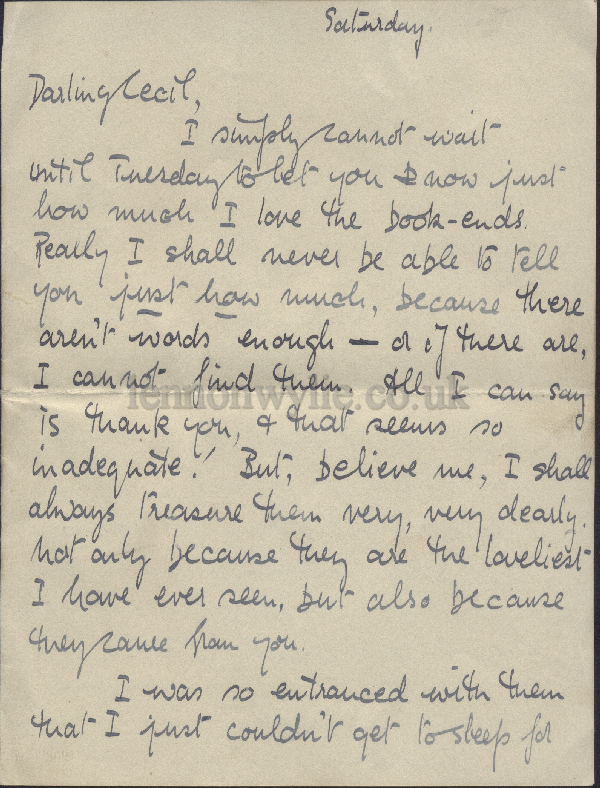 Saturday.
Darling Cecil,
I simply cannot wait
until Tuesday to let you know just
how much I love the book-ends.
Really I shall never be able to tell
you just how much, because there
aren't words enough — or if there are,
I cannot find them. All I can say
lennonwylie.co.uk
is thank you, & that seems so
inadequate! But, believe me, I shall
always treasure them very, very dearly.
Not only because they are the loveliest
I have ever seen, but also because
they came from you.
I was so entranced with them
that I just couldn't get to sleep for